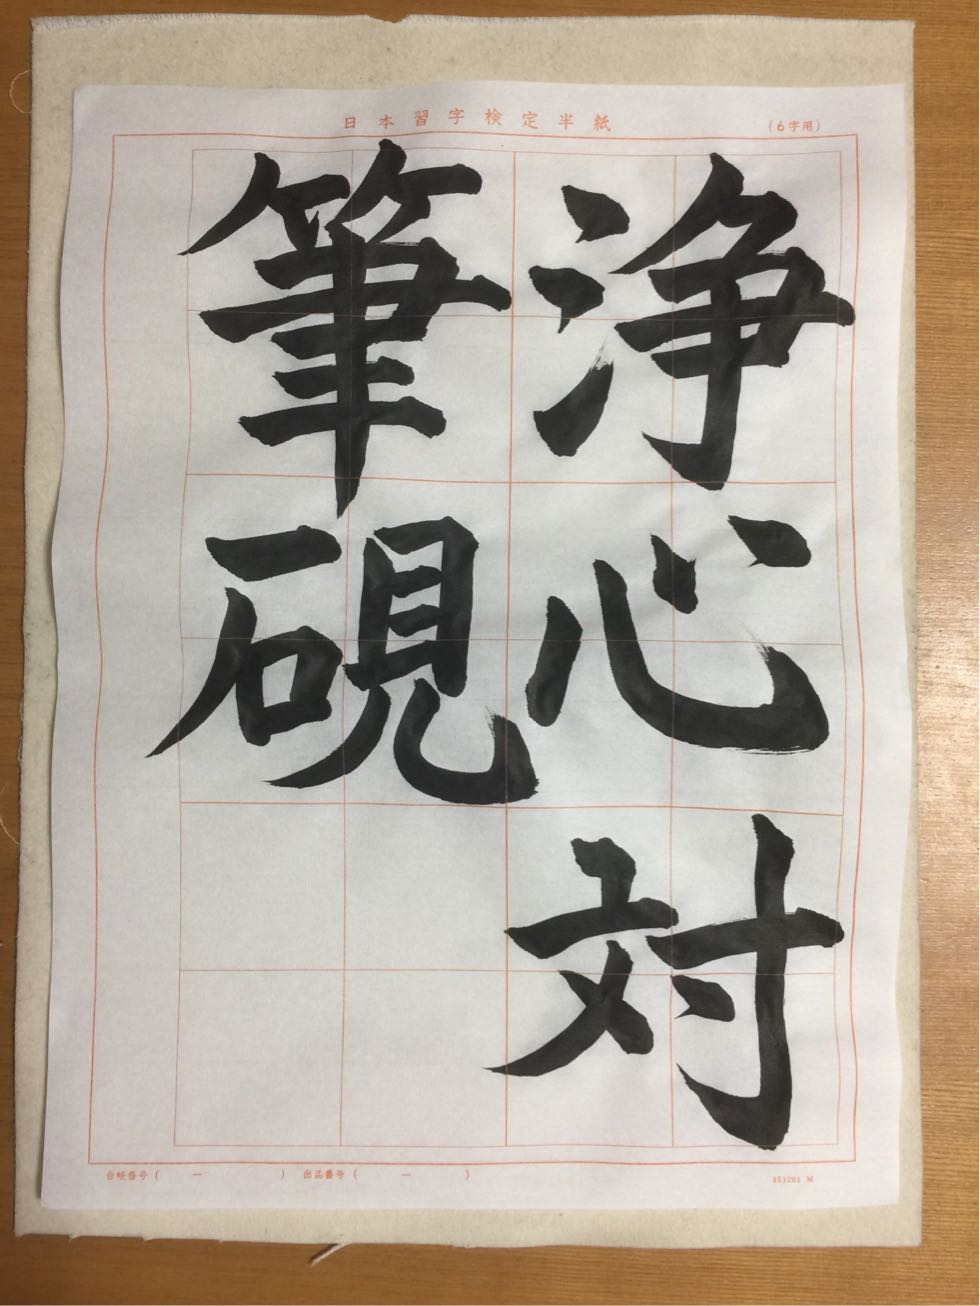 日本習字検定半紙
(6字用)
浄心対
筆硯
台帳番号( ー ) 出品番号( ー )
151201 M